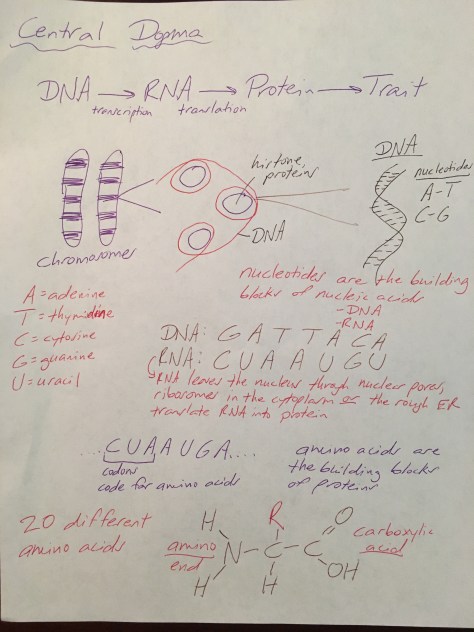 Central Dogma
DNA → RNA → Protein → Trait
transcription translation
histone proteins
DNA
chromosomes
DNA
nucleotides
A-T
C-G
nucleotides are the building
blocks of nucleic acids
-DNA
-RNA
A = adenine
T = thymidine
C = cytosine
G = guanine
U = uracil
DNA: G A T T A C A
RNA: C U A A U G U
RNA leaves the nucleus through nuclear pores,
ribosomes in the cytoplasm or the rough ER
translate RNA into protein
...CUAAUGA....
codons
code for amino acids
amino acids are
the building blocks
of proteins
20 different
amino acids
amino
end
H
N-C-C
H
R
H
O
OH
carboxylic
acid